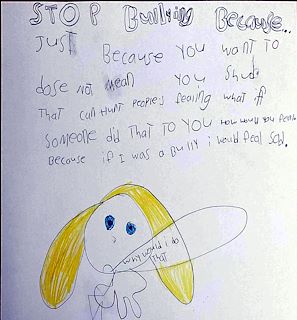 STOP Bullying Because..
Just Because you want to
dose not mean you shud
That can hurt peoples fealing what if
Someone did That TO YOU How would you feal
Because if I was a Bully i would feal sad.
why would i do
that